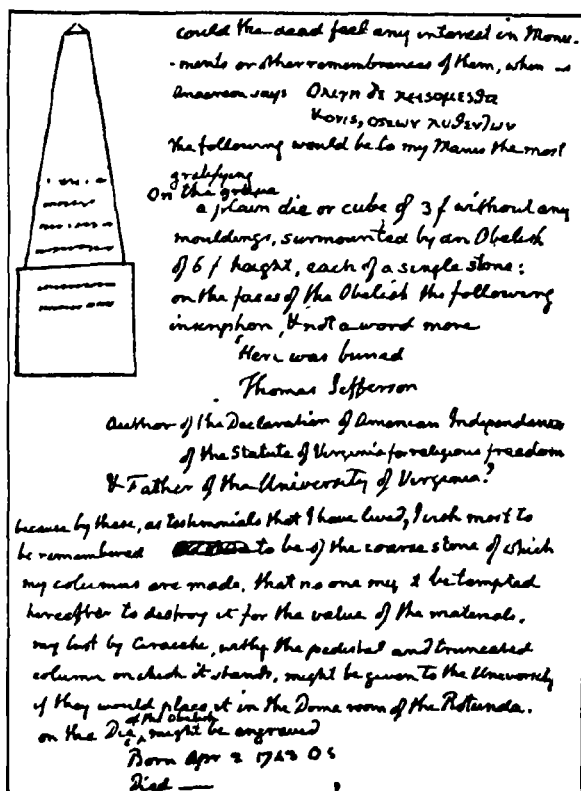 could the dead feel any interest in Monu-
-ments or other remembrances of them, when as
Anacreon says Ολιγη δε κεισομεσθα
Κονις, οστεων λυθεντων
the following would be to my Manes the most
gratifying
On the grave
a plain die or cube of 3 f without any
mouldings, surmounted by an Obelisk
of 6 f height, each of a single stone:
on the faces of the Obelisk the following
inscription, & not a word more
"Here was buried
Thomas Jefferson
Author of the Declaration of American Independance
of the Statute of Virginia for religious freedom
& Father of the University of Virginia."
because by these, as testimonials that I have lived, I wish most to
be remembered to be of the coarse stone of which
my columns are made, that no one might be tempted
hereafter to destroy it for the value of the materials.
my bust by Ciracchi, with the pedestal and truncated
column on which it stands, might be given to the University
if they would place it in the Dome room of the Rotunda.
of the Obelisk
on the Die, might be engraved
Born Apr 2 1743 O S
Died —